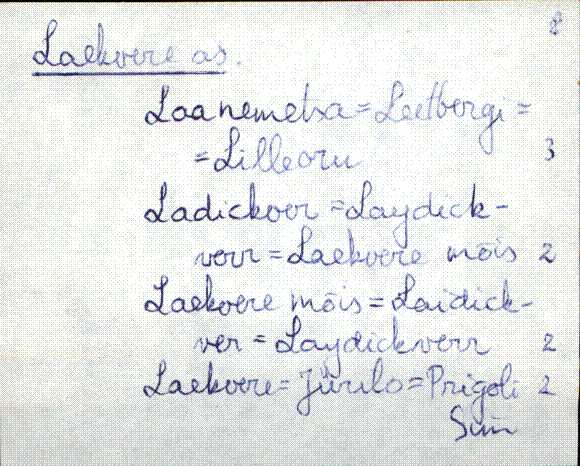 Laekvere as.
Laanemetsa = Leetbergi =
= Lilleoru 3
Ladickver = Laydick-
verr = Laekvere mõis 2
Laekvere mõis = Laidick-
ver = Laydickverr 2
Laekvere = Jürilo = Prigoli 2